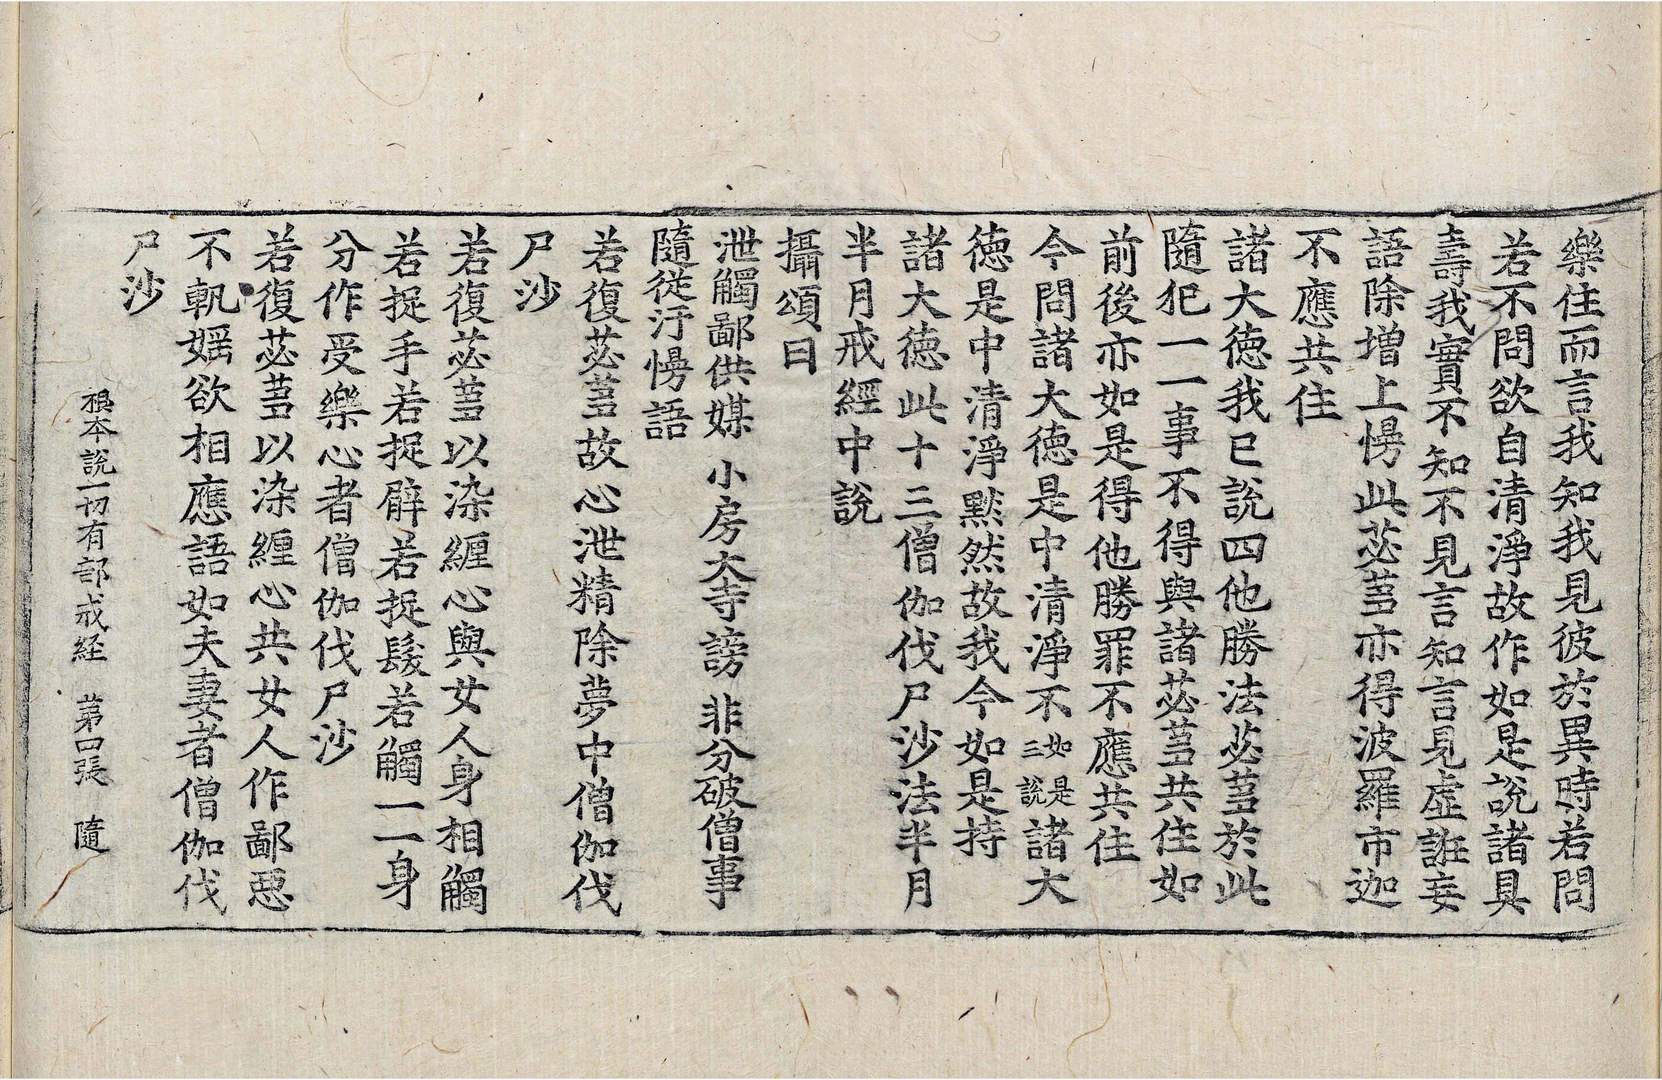 樂住而言我知我見彼於異時若問
若不問欲自清淨故作如是說諸具
壽我實不知不見言知言見虛誑妄
語除增上慢此苾蒭亦得波羅市迦
不應共住
諸大德我已說四他勝法苾蒭於此
隨犯一一事不得與諸苾蒭共住如
前後亦如是得他勝罪不應共住
今問諸大德是中清淨不如是三說諸大
德是中清淨默然故我今如是持
諸大德此十三僧伽伐尸沙法半月
半月戒經中說
攝頌曰
泄觸鄙供媒 小房大寺謗 非分破僧事
隨從汙慢語
若復苾蒭故心泄精除夢中僧伽伐
尸沙
若復苾蒭以染纏心與女人身相觸
若捉手若捉臂若捉髮若觸一一身
分作受樂心者僧伽伐尸沙
若復苾蒭以染纏心共女人作鄙惡
不軌婬欲相應語如夫妻者僧伽伐
尸沙
根本說一切有部戒經 第四張 隨